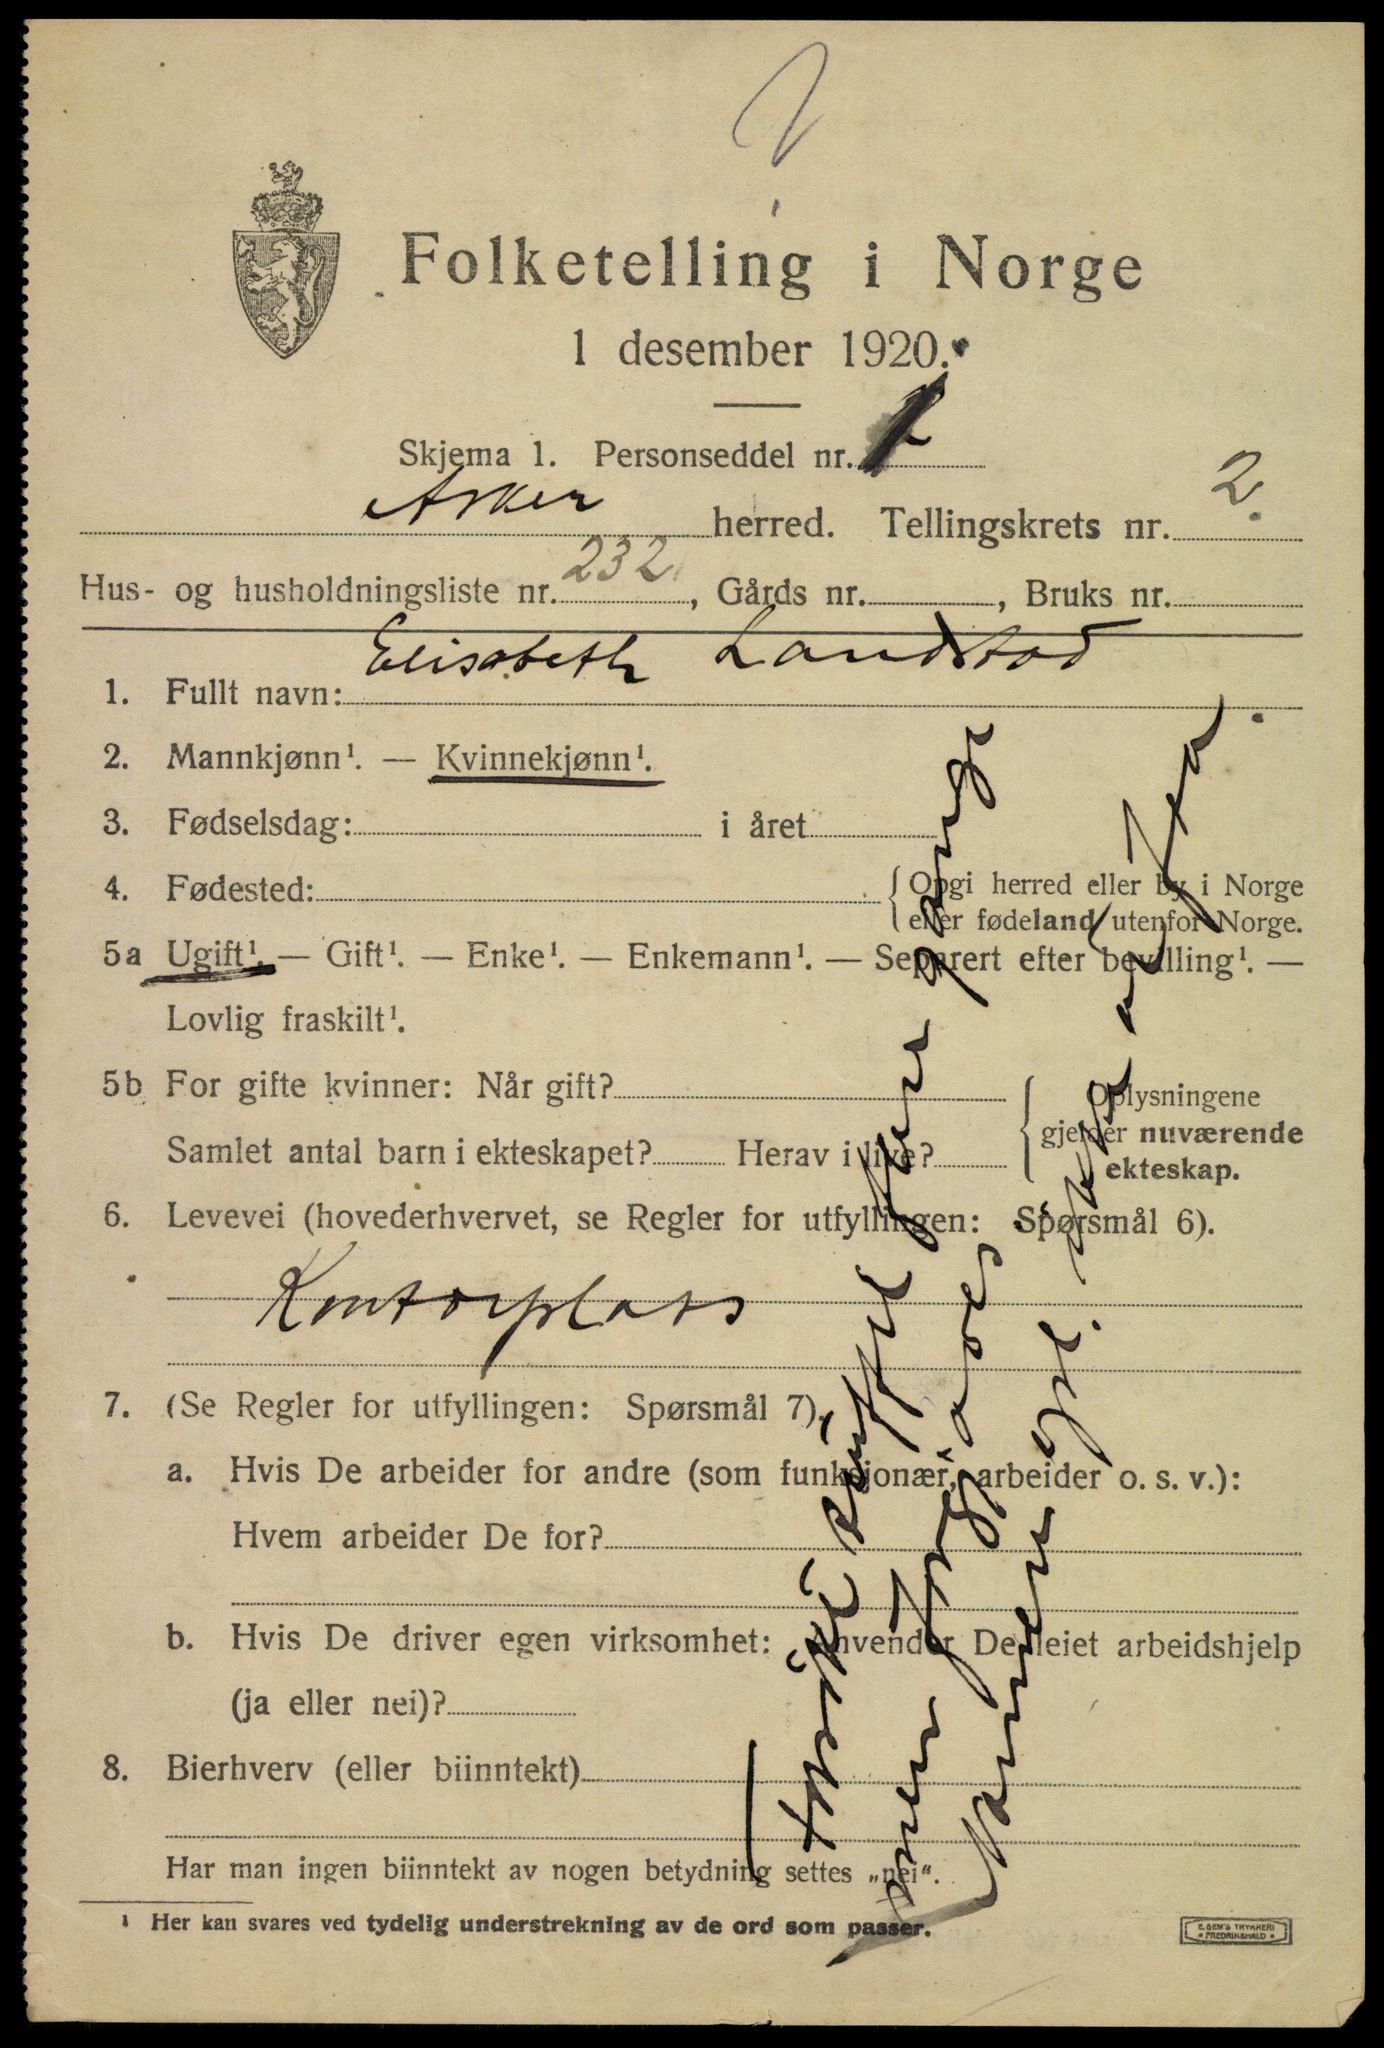 Folketelling i Norge
1 desember 1920.
Skjema 1. Personseddel nr.
Asker herred. Tellingskrets nr. 2.
Hus- og husholdningsliste nr. 232, Gårds nr. , Bruks nr.
1. Fullt navn: Elisabeth Landstad
2. Mannkjønn¹. — Kvinnekjønn¹.
3. Fødselsdag: i året
4. Fødested: { Opgi herred eller by i Norge
eller fødeland utenfor Norge.
5a Ugift¹. — Gift¹. — Enke¹. — Enkemann¹. — Separert efter bevilling¹. —
Lovlig fraskilt¹.
5b For gifte kvinner: Når gift? { Oplysningene
gjelder nuværende
ekteskap.
Samlet antal barn i ekteskapet? Herav i live?
6. Levevei (hovederhvervet, se Regler for utfyllingen: Spørsmål 6).
Kontorplass
7. (Se Regler for utfyllingen: Spørsmål 7).
a. Hvis De arbeider for andre (som funksjonær, arbeider o. s. v.):
Hvem arbeider De for?
b. Hvis De driver egen virksomhet: Anvender De leiet arbeidshjelp
(ja eller nei)?
8. Bierhverv (eller biinntekt)
Har man ingen biinntekt av nogen betydning settes „nei“.
¹ Her kan svares ved tydelig understrekning av de ord som passer.
E. SEM'S TRYKKERI
FREDRIKSHALD
Ikke truffet flere gange